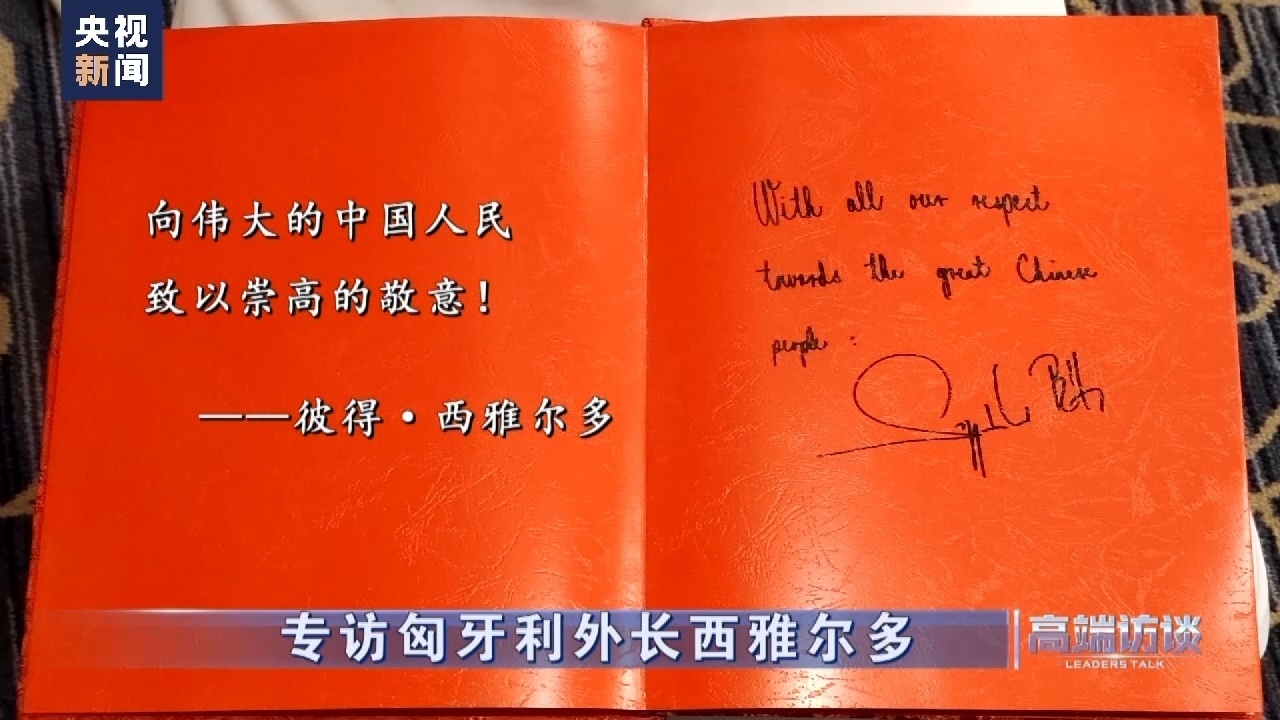 央视
新闻
向伟大的中国人民
致以崇高的敬意！
——彼得·西雅尔多
With all our respect
towards the great Chinese
people:
专访匈牙利外长西雅尔多
高端访谈
LEADERS TALK